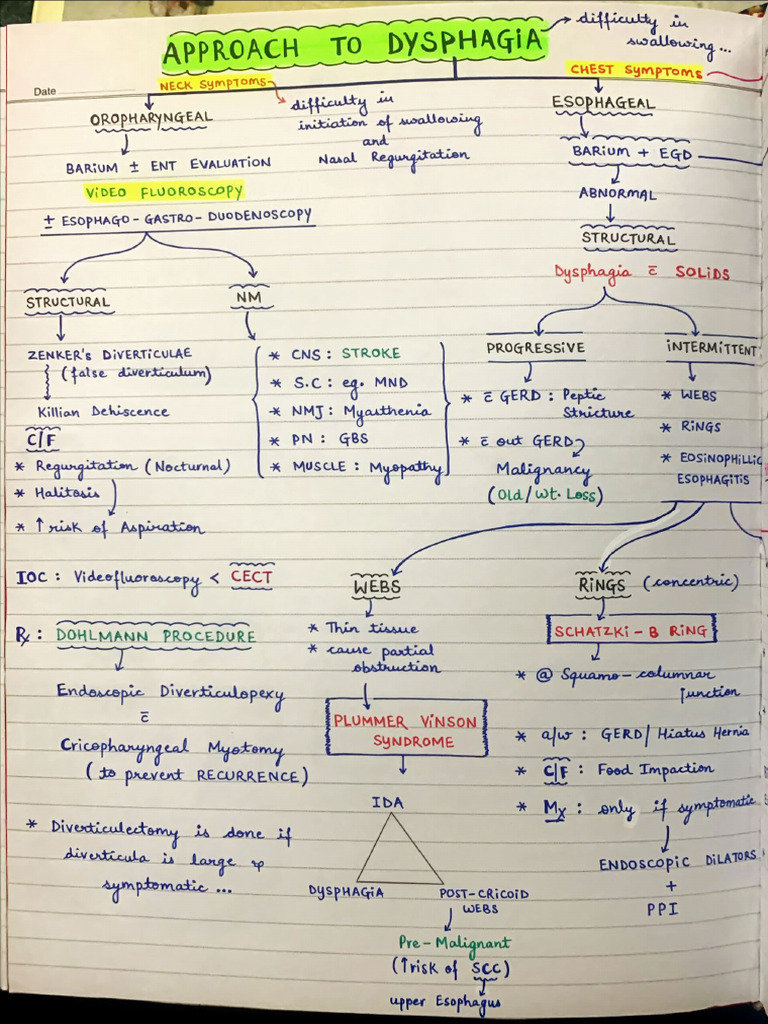 APPROACH TO DYSPHAGIA
difficulty in
swallowing...
Date
NECK SYMPTOMS
CHEST SYMPTOMS
OROPHARYNGEAL
difficulty in
initiation of swallowing
and
Nasal Regurgitation
ESOPHAGEAL
BARIUM ± ENT EVALUATION
VIDEO FLUOROSCOPY
± ESOPHAGO-GASTRO-DUODENOSCOPY
BARIUM + EGD
ABNORMAL
STRUCTURAL
Dysphagia c̄ SOLIDS
STRUCTURAL
NM
ZENKER'S DIVERTICULAE
(false diverticulum)
Killian Dehiscence
C/F
* Regurgitation (Nocturnal)
* Halitosis
* ↑ risk of Aspiration
* CNS : STROKE
* S.C : eg. MND
* NMJ : Myasthenia
* PN : GBS
* MUSCLE : Myopathy
PROGRESSIVE
* c̄ GERD : Peptic
Stricture
* c̄ out GERD
Malignancy
(Old/Wt. Loss)
INTERMITTENT
* WEBS
* RINGS
* EOSINOPHILLIC
ESOPHAGITIS
IOC : Videofluoroscopy < CECT
Rx : DOHLMANN PROCEDURE
Endoscopic Diverticulopexy
c̄
Cricopharyngeal Myotomy
(to prevent RECURRENCE)
* Diverticulectomy is done if
diverticula is large &
symptomatic ...
WEBS
* Thin tissue
* cause partial
obstruction
PLUMMER VINSON
SYNDROME
IDA
DYSPHAGIA
POST-CRICOID
WEBS
Pre-Malignant
(↑risk of SCC)
upper Esophagus
RINGS (concentric)
SCHATZKI-B RING
* @ Squamo-columnar
junction
* a/w : GERD/Hiatus Hernia
* C/F : Food Impaction
* Mx : only if symptomatic
ENDOSCOPIC DILATORS
+
PPI